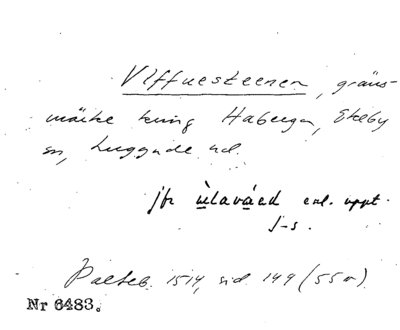 Vlffuesteenen, gräns-
märke kring Haberga, Ekeby
sn, Luggude hd.
jfr ùlavá̱ed enl. uppt.
J-s.
Palteb. 1514, sid. 149 (55 v).
Nr 6483.